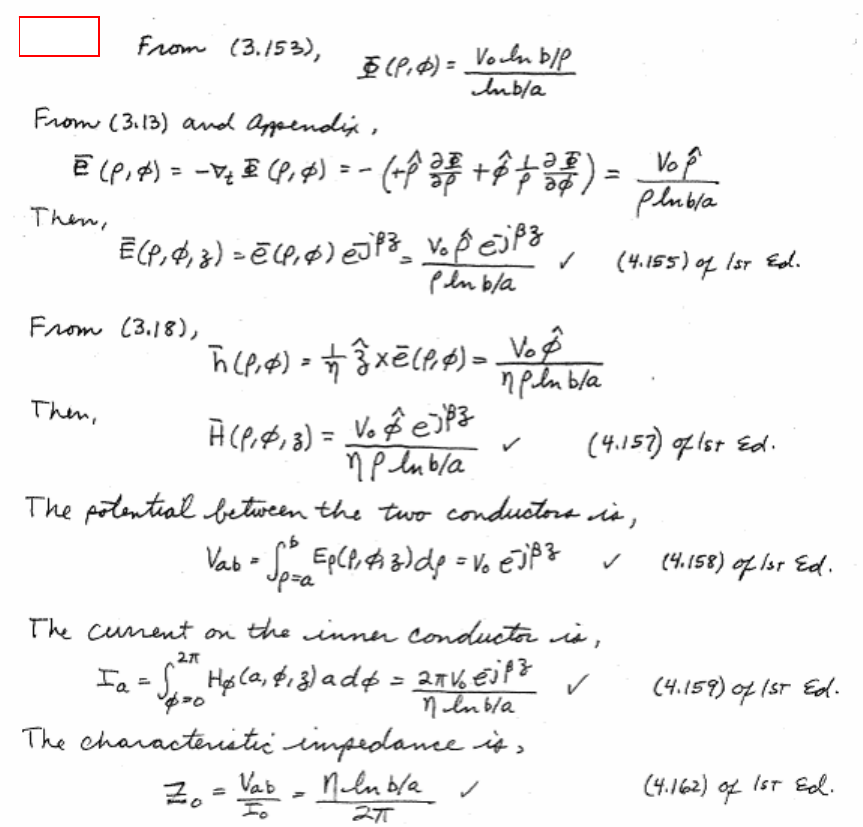 From (3.153), Φ(ρ,φ) = V₀ ln b/ρ / ln b/a
From (3.13) and Appendix,
ē(ρ,φ) = -∇ₜ Φ(ρ,φ) = -(+ρ̂ ∂Φ/∂ρ + φ̂ 1/ρ ∂Φ/∂φ) = V₀ ρ̂ / ρ ln b/a
Then,
Ē(ρ,φ,z) = ē(ρ,φ) e^-jβz = V₀ ρ̂ e^-jβz / ρ ln b/a ✓ (4.155) of 1st Ed.
From (3.18),
h̄(ρ,φ) = 1/η ẑ × ē(ρ,φ) = V₀ φ̂ / η ρ ln b/a
Then,
H̄(ρ,φ,z) = V₀ φ̂ e^-jβz / η ρ ln b/a ✓ (4.157) of 1st Ed.
The potential between the two conductors is,
Vab = ∫_ρ=a^b Eρ(ρ,φ,z) dρ = V₀ e^-jβz ✓ (4.158) of 1st Ed.
The current on the inner conductor is,
Ia = ∫_φ=0^2π Hφ(a,φ,z) a dφ = 2πV₀ e^-jβz / η ln b/a ✓ (4.159) of 1st Ed.
The characteristic impedance is,
Z₀ = Vab / I₀ = η ln b/a / 2π ✓ (4.162) of 1st Ed.